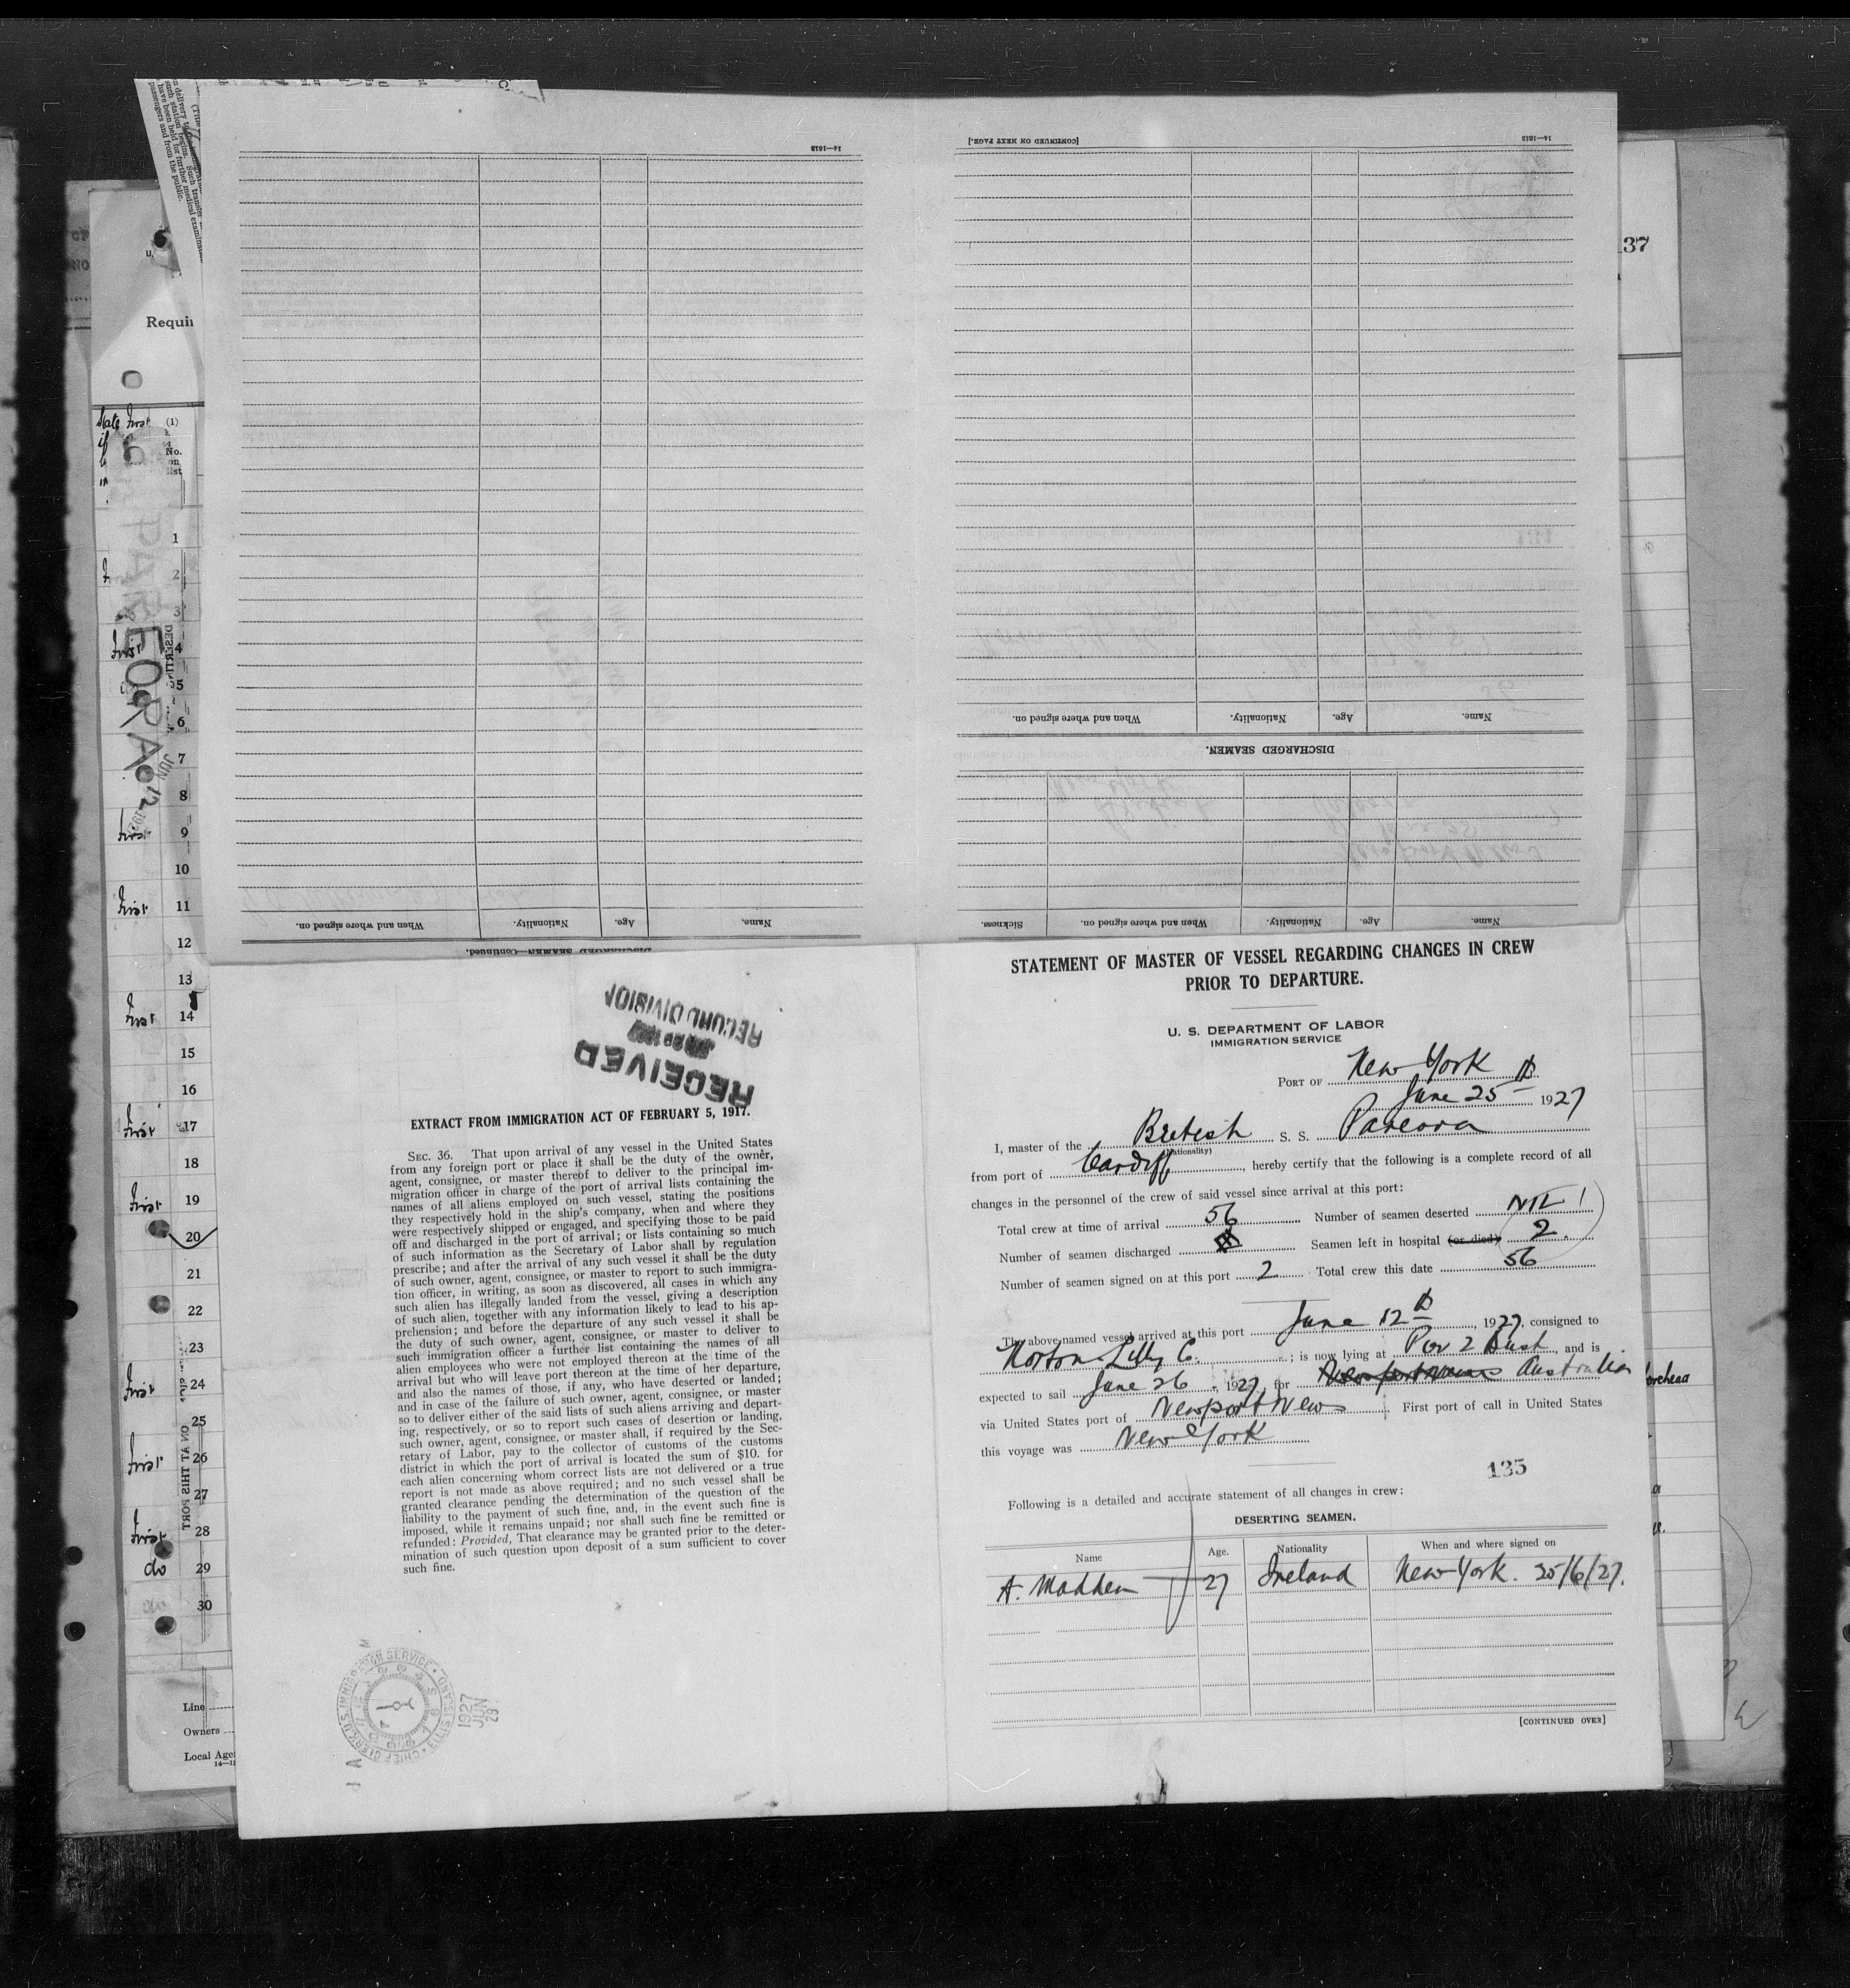 (Title
n delivery to
such station begins. Such transfer
have been held for further medical examina
passengers and from the public.
U.
Requir
137
State First
(1)
if
No.
on
list
1
2
3
First 4
5
6
7
8
First 9
10
First 11
12
13
First 14
15
16
First 17
18
First 19
20
21
22
23
First 24
25
First 26
27
First 28
do 29
do 30
PAREORA
JUN 12 1927
DESERTING
ON AT THIS PORT
Line
Owners
Local Age
14—11
14—1613
DISCHARGED SEAMEN—Continued.
Name. Age. Nationality. When and where signed on.
Name. Age. Nationality. When and where signed on. Sickness.
DISCHARGED SEAMEN.
Name. Age. Nationality. When and where signed on.
14—1613
[CONTINUED ON NEXT PAGE.]
RECEIVED
RECORD DIVISION
EXTRACT FROM IMMIGRATION ACT OF FEBRUARY 5, 1917.
SEC. 36. That upon arrival of any vessel in the United States
from any foreign port or place it shall be the duty of the owner,
agent, consignee, or master thereof to deliver to the principal im-
migration officer in charge of the port of arrival lists containing the
names of all aliens employed on such vessel, stating the positions
they respectively hold in the ship's company, when and where they
were respectively shipped or engaged, and specifying those to be paid
off and discharged in the port of arrival; or lists containing so much
of such information as the Secretary of Labor shall by regulation
prescribe; and after the arrival of any such vessel it shall be the duty
of such owner, agent, consignee, or master to report to such immigra-
tion officer, in writing, as soon as discovered, all cases in which any
such alien has illegally landed from the vessel, giving a description
of such alien, together with any information likely to lead to his ap-
prehension; and before the departure of any such vessel it shall be
the duty of such owner, agent, consignee, or master to deliver to
such immigration officer a further list containing the names of all
alien employees who were not employed thereon at the time of the
arrival but who will leave port thereon at the time of her departure,
and also the names of those, if any, who have deserted or landed;
and in case of the failure of such owner, agent, consignee, or master
so to deliver either of the said lists of such aliens arriving and depart-
ing, respectively, or so to report such cases of desertion or landing,
such owner, agent, consignee, or master shall, if required by the Sec-
retary of Labor, pay to the collector of customs of the customs
district in which the port of arrival is located the sum of $10. for
each alien concerning whom correct lists are not delivered or a true
report is not made as above required; and no such vessel shall be
granted clearance pending the determination of the question of the
liability to the payment of such fine, and, in the event such fine is
imposed, while it remains unpaid; nor shall such fine be remitted or
refunded: Provided, That clearance may be granted prior to the deter-
mination of such question upon deposit of a sum sufficient to cover
such fine.
CHIEF CLERK U.S. IMMIGRATION SERVICE · ELLIS ISLAND
1927
JUN
28
STATEMENT OF MASTER OF VESSEL REGARDING CHANGES IN CREW
PRIOR TO DEPARTURE.
U. S. DEPARTMENT OF LABOR
IMMIGRATION SERVICE
PORT OF New York
June 25th 1927
I, master of the British S. S. Pareora
(Nationality)
from port of Cardiff, hereby certify that the following is a complete record of all
changes in the personnel of the crew of said vessel since arrival at this port:
Total crew at time of arrival 56 Number of seamen deserted NIL 1
Number of seamen discharged Seamen left in hospital (or died) 2.
Number of seamen signed on at this port 2 Total crew this date 56
The above named vessel arrived at this port June 12th, 1927, consigned to
Norton Lilly Co.; is now lying at Pier 2 Bush, and is
expected to sail June 26, 1927, for Newport News Australia
via United States port of Newport News. First port of call in United States
this voyage was New York
135
Following is a detailed and accurate statement of all changes in crew:
DESERTING SEAMEN.
Name Age. Nationality When and where signed on
A. Madden 27 Ireland New York. 25/6/27.
[CONTINUED OVER]